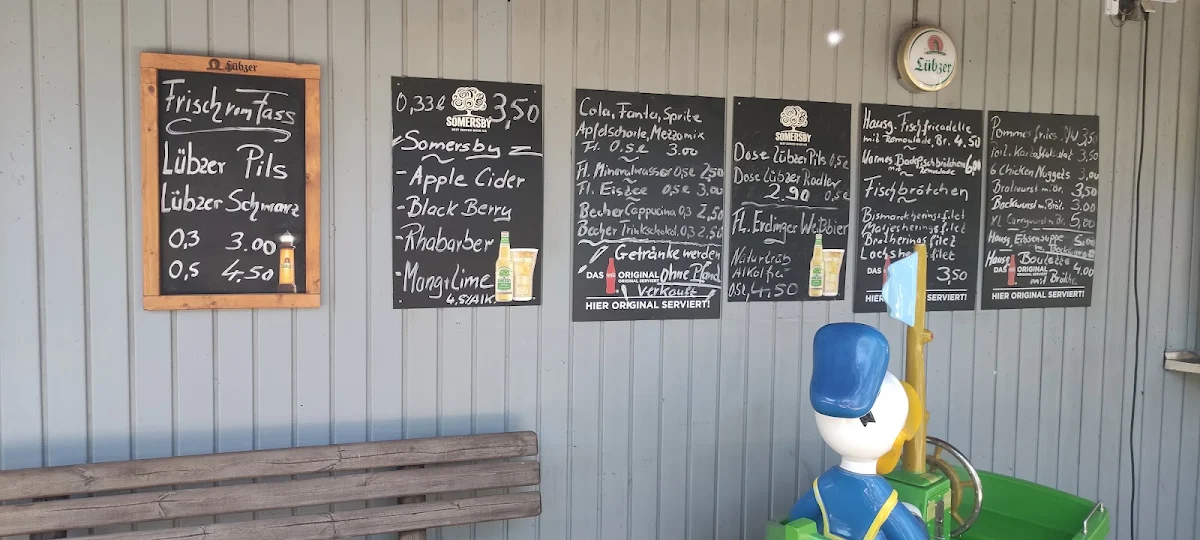 Lübzer
Frisch vom Fass
Lübzer Pils
Lübzer Schwarz
0,3 3.00
0,5 4.50
0,33l 3,50
SOMERSBY
Somersby
- Apple Cider
- Black Berry
- Rhabarber
- Mango Lime
4,5%Alk
Cola, Fanta, Sprite
Apfelschorle, Mezzomix
Fl. 0,5l 3.00
Fl. Mineralwasser 0,5l 2,50
Fl. Eistee 0,5l 3,00
Becher Cappucina 0,3 2,50
Becher Trinkschokol. 0,3 2,50
Getränke werden
Ohne Pfand
verkauft
DAS ORIGINAL
HIER ORIGINAL SERVIERT!
SOMERSBY
Dose Lübzer Pils 0,5l
Dose Lübzer Radler
2.90 0,5l
Fl. Erdinger Weißbier
Naturtrüb
Alkolfrei
0,5l, 4,50
Lübzer
Hausg. Fischfricadelle
mit Remoulade, Br. 4,50
Warmes Backfischbrötchen 6,00
mit Remoulade
Fischbrötchen
Bismarckheringsfilet
Matjesheringsfilet
Bratheringsfilet
Lachs
3,50
DAS
HIER ORIGINAL SERVIERT!
Pommes frites 3,50
3,50
6 Chicken Nuggets 3,00
Bratwurst m. Br. 3,50
Bockwurst m. Bröt. 3.00
Currywurst m. Br. 5,00
Hausg. Erbsensuppe 5,00
m. Bockwurst
Hausg. Boulette 4,00
mit Brötch.
DAS ORIGINAL
HIER ORIGINAL SERVIERT!